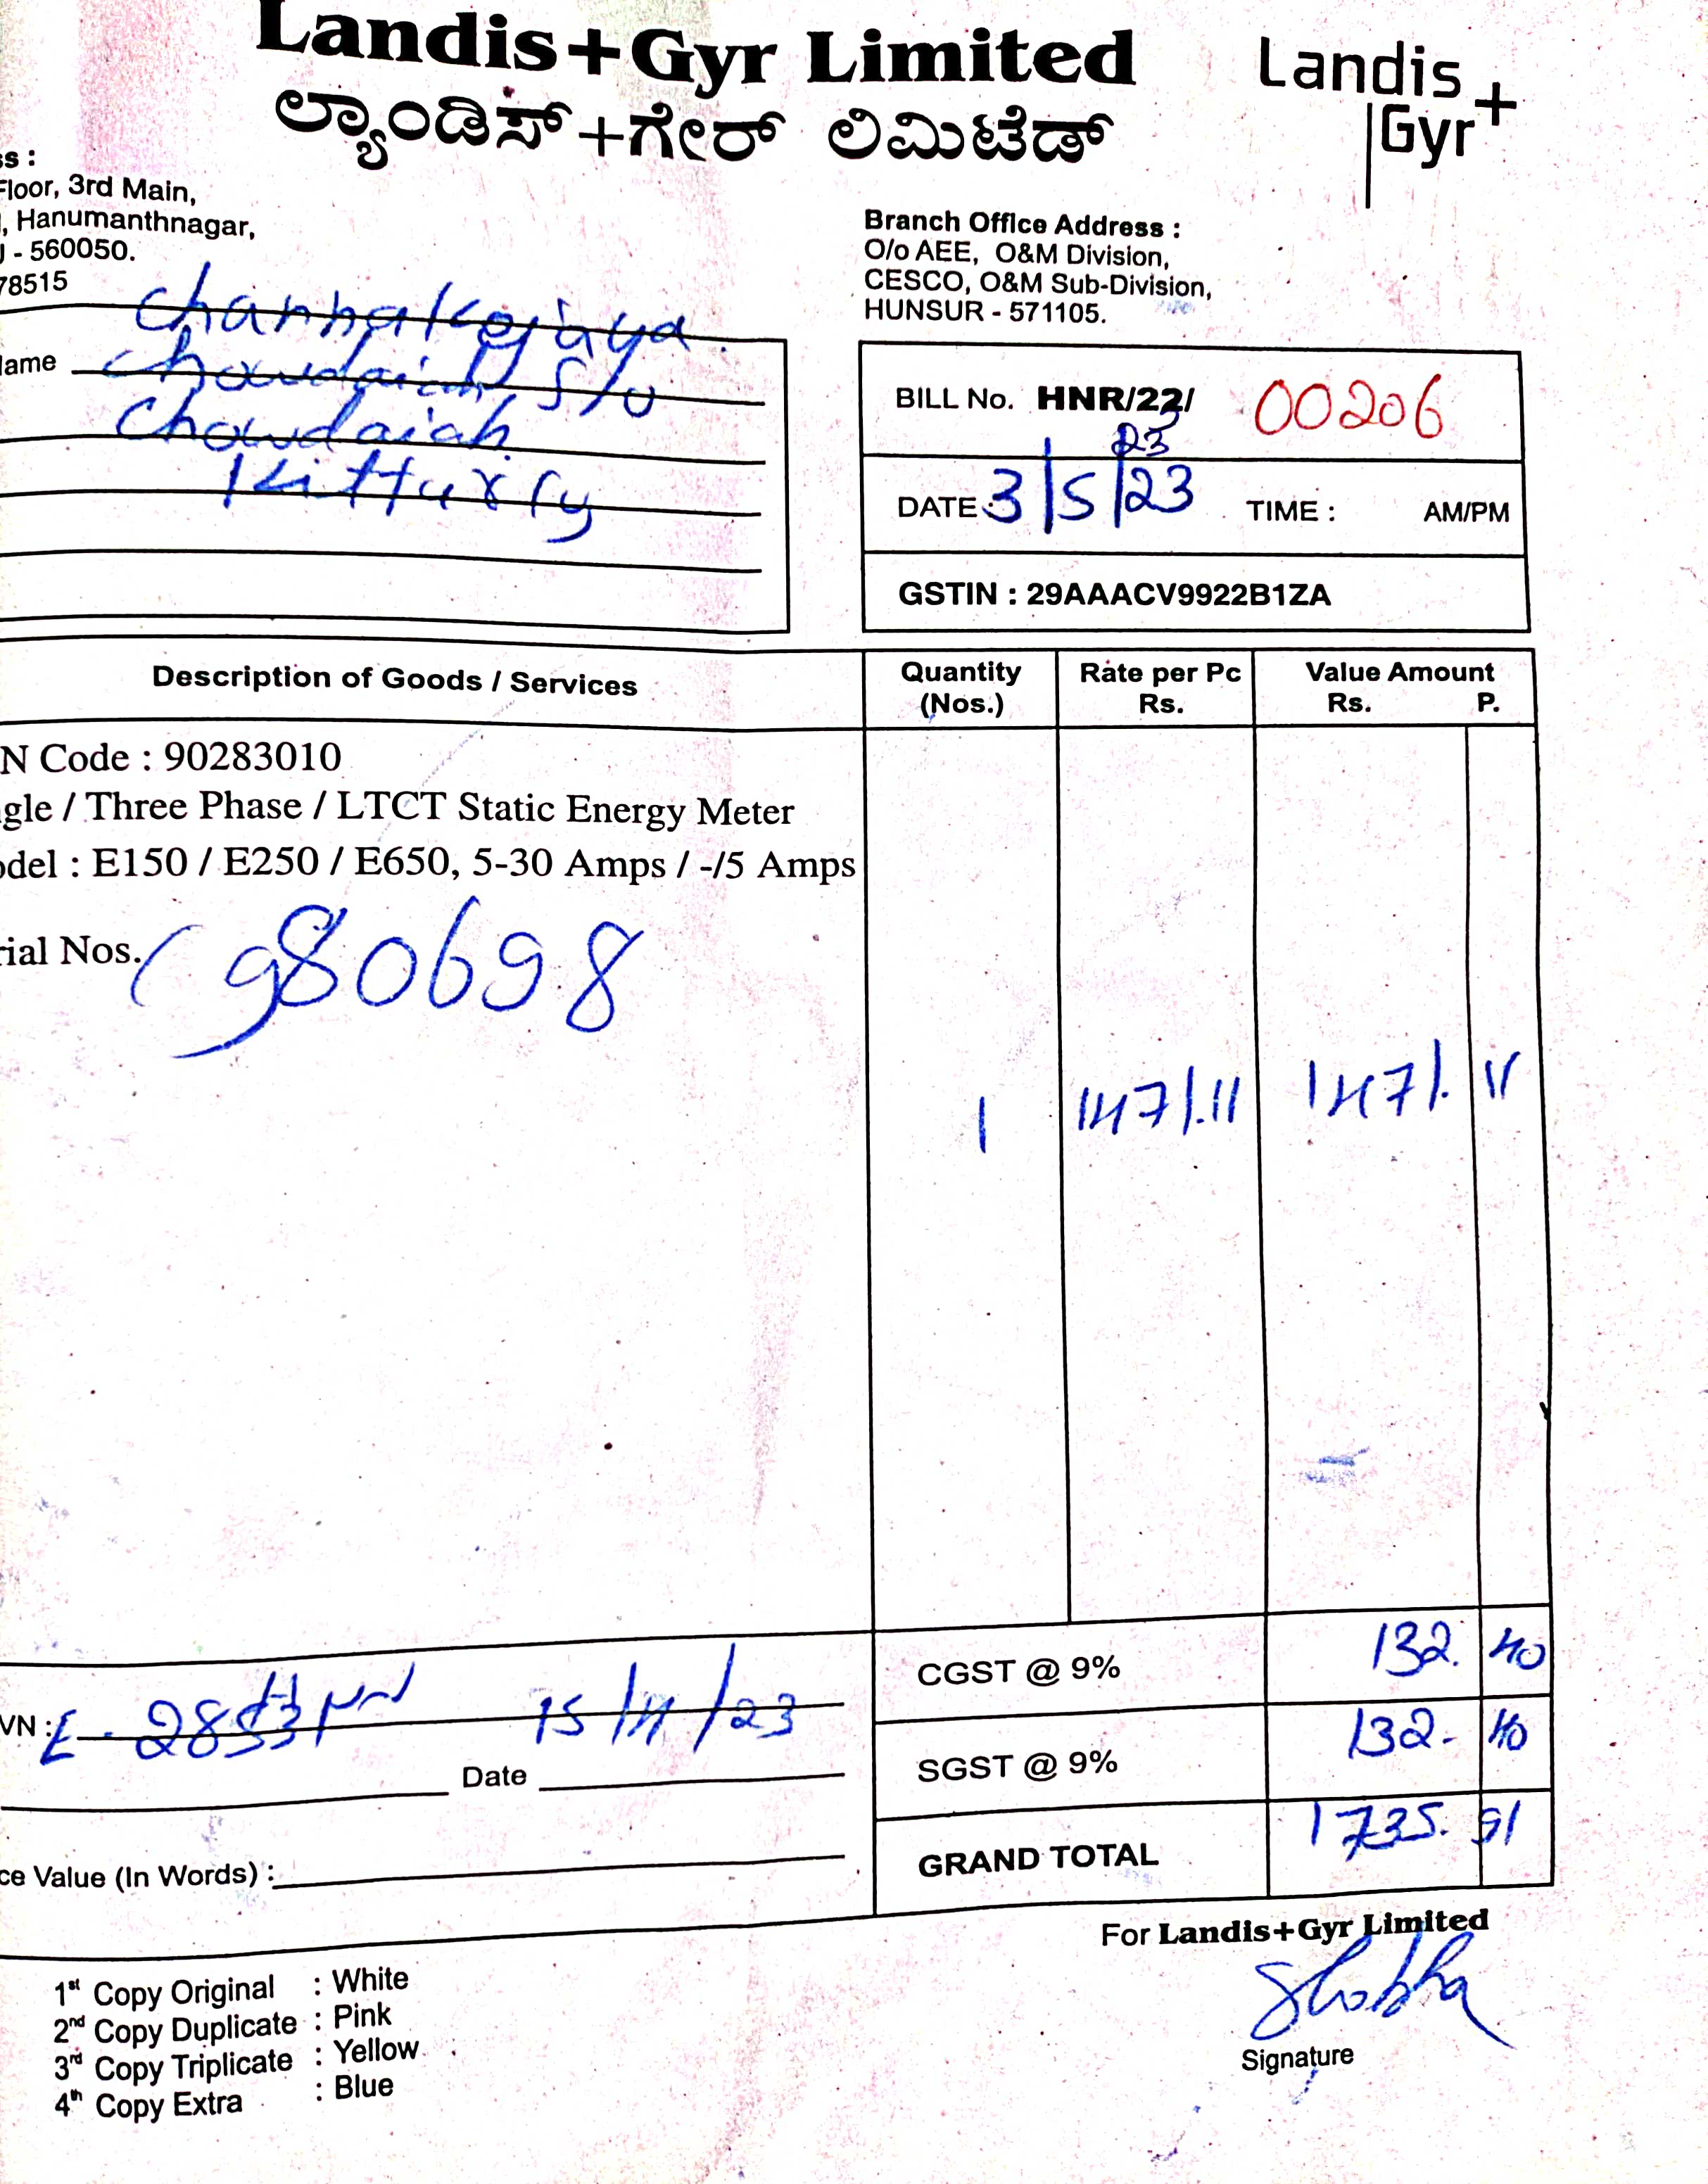 Landis+Gyr Limited
ಲ್ಯಾಂಡಿಸ್+ಗೇರ್ ಲಿಮಿಟೆಡ್
Landis
Gyr+
ss :
Floor, 3rd Main,
, Hanumanthnagar,
J - 560050.
78515
Branch Office Address :
O/o AEE, O&M Division,
CESCO, O&M Sub-Division,
HUNSUR - 571105.
Name
Chowdaiah S/o
Chowdaiah
BILL No. HNR/22/ 00206
23
DATE : 3/5/23 TIME : AM/PM
GSTIN : 29AAACV9922B1ZA
Description of Goods / Services Quantity (Nos.) Rate per Pc Rs. Value Amount Rs. P.
N Code : 90283010
gle / Three Phase / LTCT Static Energy Meter
odel : E150 / E250 / E650, 5-30 Amps / -/5 Amps
rial Nos. 980698
1 1471.11 1471. 11
CGST @ 9% 132. 40
VN : 23
SGST @ 9% 132- 40
Date
GRAND TOTAL 1735. 91
ce Value (In Words) :
For Landis+Gyr Limited
Shobha
Signature
1st Copy Original : White
2nd Copy Duplicate : Pink
3rd Copy Triplicate : Yellow
4th Copy Extra : Blue